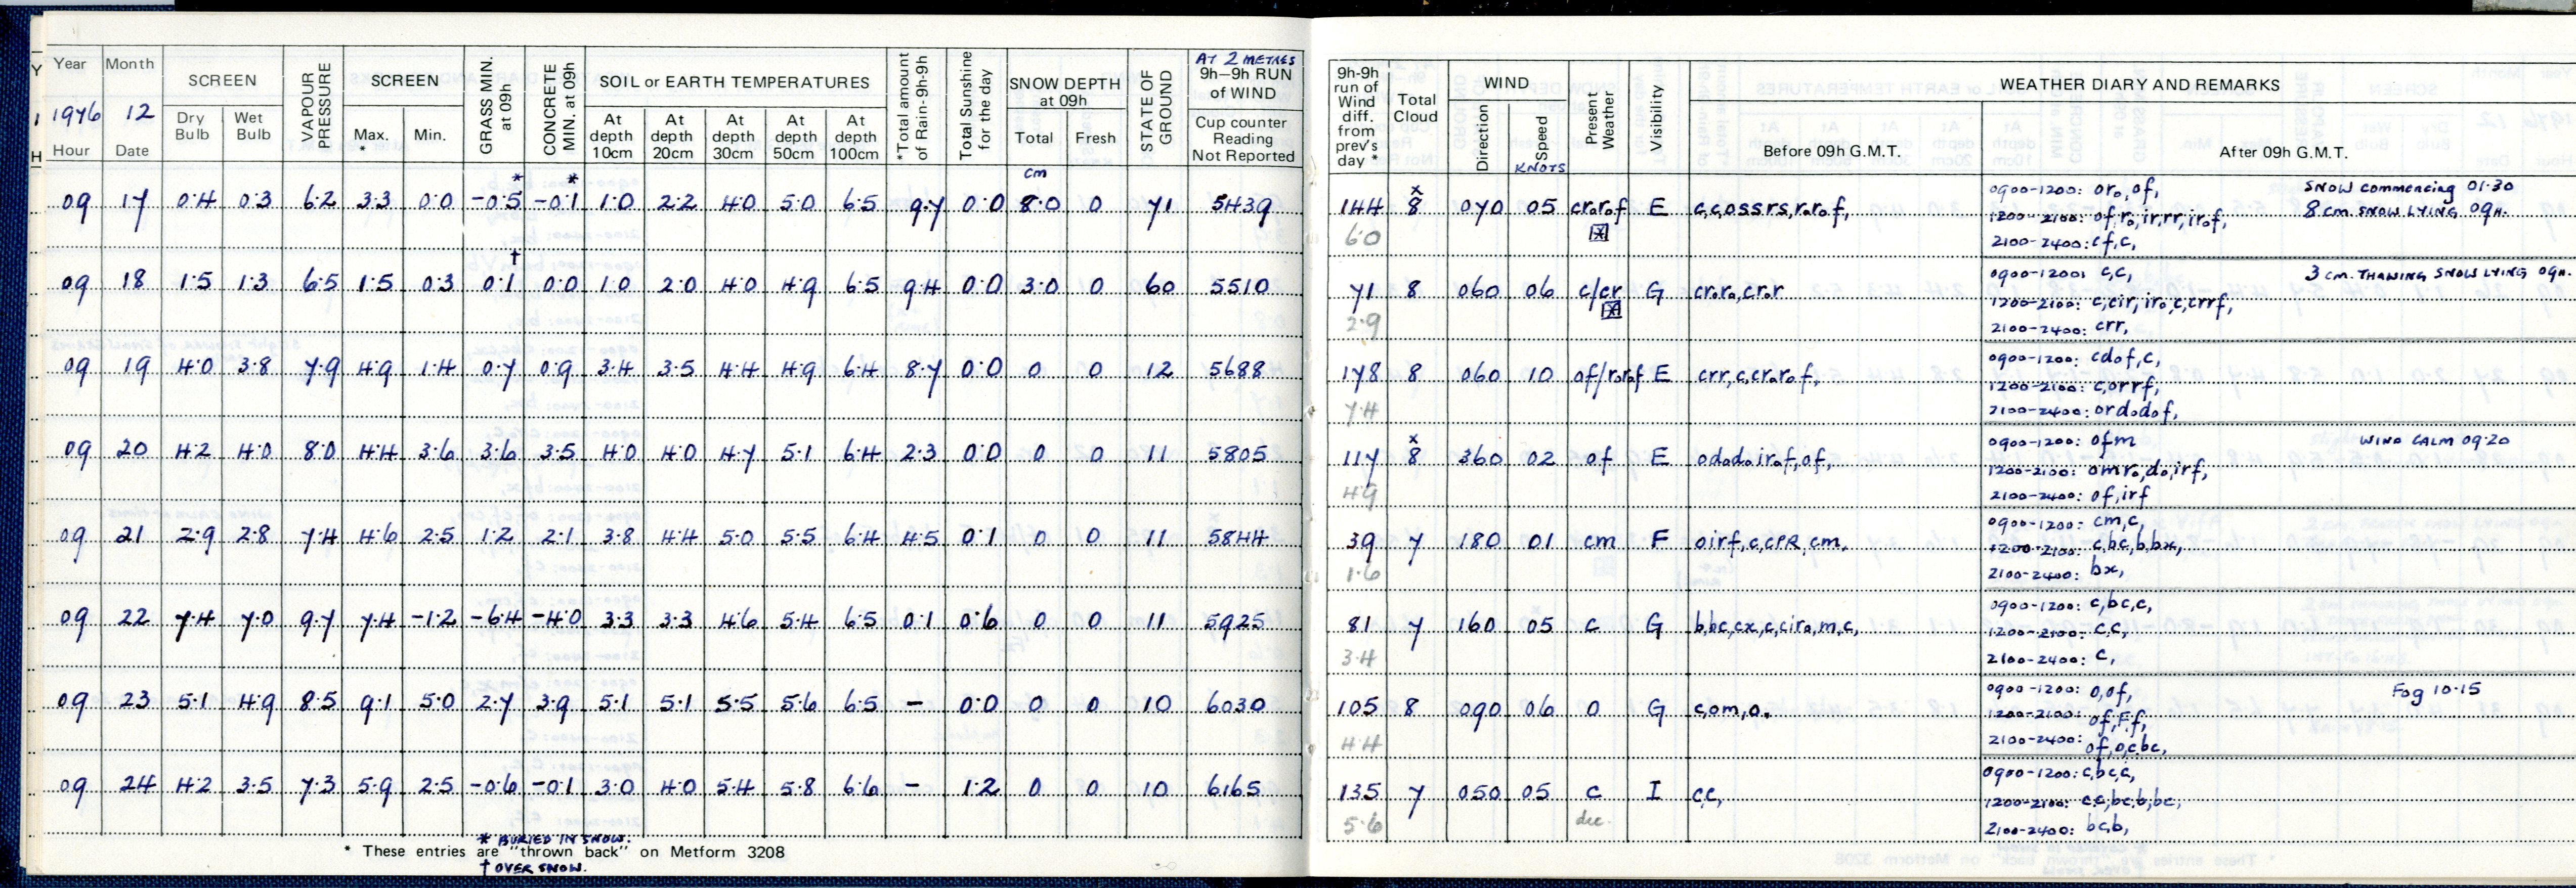 Year Month SCREEN VAPOUR PRESSURE SCREEN GRASS MIN. at 09h CONCRETE MIN. at 09h SOIL or EARTH TEMPERATURES *Total amount of Rain-9h-9h Total Sunshine for the day SNOW DEPTH at 09h STATE OF GROUND AT 2 METRES 9h—9h RUN of WIND
1976 12 Dry Bulb Wet Bulb Max. * Min. At depth 10cm At depth 20cm At depth 30cm At depth 50cm At depth 100cm Total Fresh Cup counter Reading Not Reported
Hour Date
cm
* *
09 17 0.4 0.3 6.2 3.3 0.0 -0.5 -0.1 1.0 2.2 4.0 5.0 6.5 9.7 0.0 8.0 0 71 5439
†
09 18 1.5 1.3 6.5 1.5 0.3 0.1 0.0 1.0 2.0 4.0 4.9 6.5 9.4 0.0 3.0 0 60 5510
09 19 4.0 3.8 7.9 4.9 1.4 0.7 0.9 3.4 3.5 4.4 4.9 6.4 8.7 0.0 0 0 12 5688
09 20 4.2 4.0 8.0 4.4 3.6 3.6 3.5 4.0 4.0 4.7 5.1 6.4 2.3 0.0 0 0 11 5805
09 21 2.9 2.8 7.4 4.6 2.5 1.2 2.1 3.8 4.4 5.0 5.5 6.4 4.5 0.1 0 0 11 5844
09 22 7.4 7.0 9.7 7.4 -1.2 -6.4 -4.0 3.3 3.3 4.6 5.4 6.5 0.1 0.6 0 0 11 5925
09 23 5.1 4.9 8.5 9.1 5.0 2.7 3.9 5.1 5.1 5.5 5.6 6.5 - 0.0 0 0 10 6030
09 24 4.2 3.5 7.3 5.9 2.5 -0.6 -0.1 3.0 4.0 5.4 5.8 6.6 - 1.2 0 0 10 6165
* BURIED IN SNOW.
* These entries are "thrown back" on Metform 3208
† OVER SNOW.
9h-9h run of Wind diff. from prev's day * Total Cloud WIND Present Weather Visibility WEATHER DIARY AND REMARKS
Direction Speed KNOTS Before 09h G.M.T. After 09h G.M.T.
x 0900-1200: or₀,of, SNOW commencing 01.30
144 8 070 05 cr₀r₀f E c,c,ossrs,r₀r₀f, 1200-2100: of,r₀,ir,rr,ir₀f, 8 cm. SNOW LYING 09H.
6.0 2100-2400: cf,c,
0900-1200: c,c, 3 cm. THAWING SNOW LYING 09H.
71 8 060 06 c/cr G cr₀r₀,cr₀r 1200-2100: c,cir,ir₀,c,crrf,
2.9 2100-2400: crr,
0900-1200: cd₀f,c,
178 8 060 10 of/r₀r₀f E crr,c,cr₀r₀f, 1200-2100: c,orrf,
7.4 2100-2400: ord₀d₀f,
x 0900-1200: ofm WIND CALM 09.20
117 8 360 02 of E od₀d₀ir₀f,of, 1200-2100: omr₀,d₀,irf,
4.9 2100-2400: of,irf
0900-1200: cm,c,
39 7 180 01 cm F oirf,c,cPR,cm, 1200-2100: c,bc,b,bx,
1.6 2100-2400: bx,
0900-1200: c,bc,c,
81 7 160 05 c G b,bc,cx,c,cir₀,m,c, 1200-2100: c,c,
3.4 2100-2400: c,
0900-1200: o,of, Fog 10.15
105 8 090 06 o G c,om,o, 1200-2100: of,F,f,
4.4 2100-2400: of,o,c,bc,
0900-1200: c,bc,c,
135 7 050 05 c I c,c, 1200-2100: c,c,bc,b,bc,
5.6 dec. 2100-2400: bc,b,